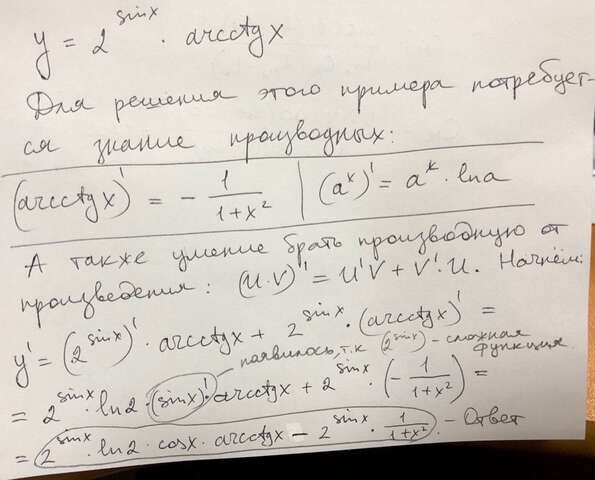 y = 2^sinx · arcctgx
Для решения этого примера потребует-
ся знание производных:
(arcctgx)' = - 1/(1+x²) | (a^x)' = a^x · lna
А также умение брать производную от
произведения: (U·V)' = U'V + V'·U. Начнём:
y' = (2^sinx)' · arcctgx + 2^sinx · (arcctgx)' =
появилось, т.к (2^sinx) - сложная функция.
= 2^sinx · ln2 · (sinx)' · arcctgx + 2^sinx · (- 1/(1+x²)) =
= 2^sinx · ln2 · cosx · arcctgx - 2^sinx · 1/(1+x²). - Ответ